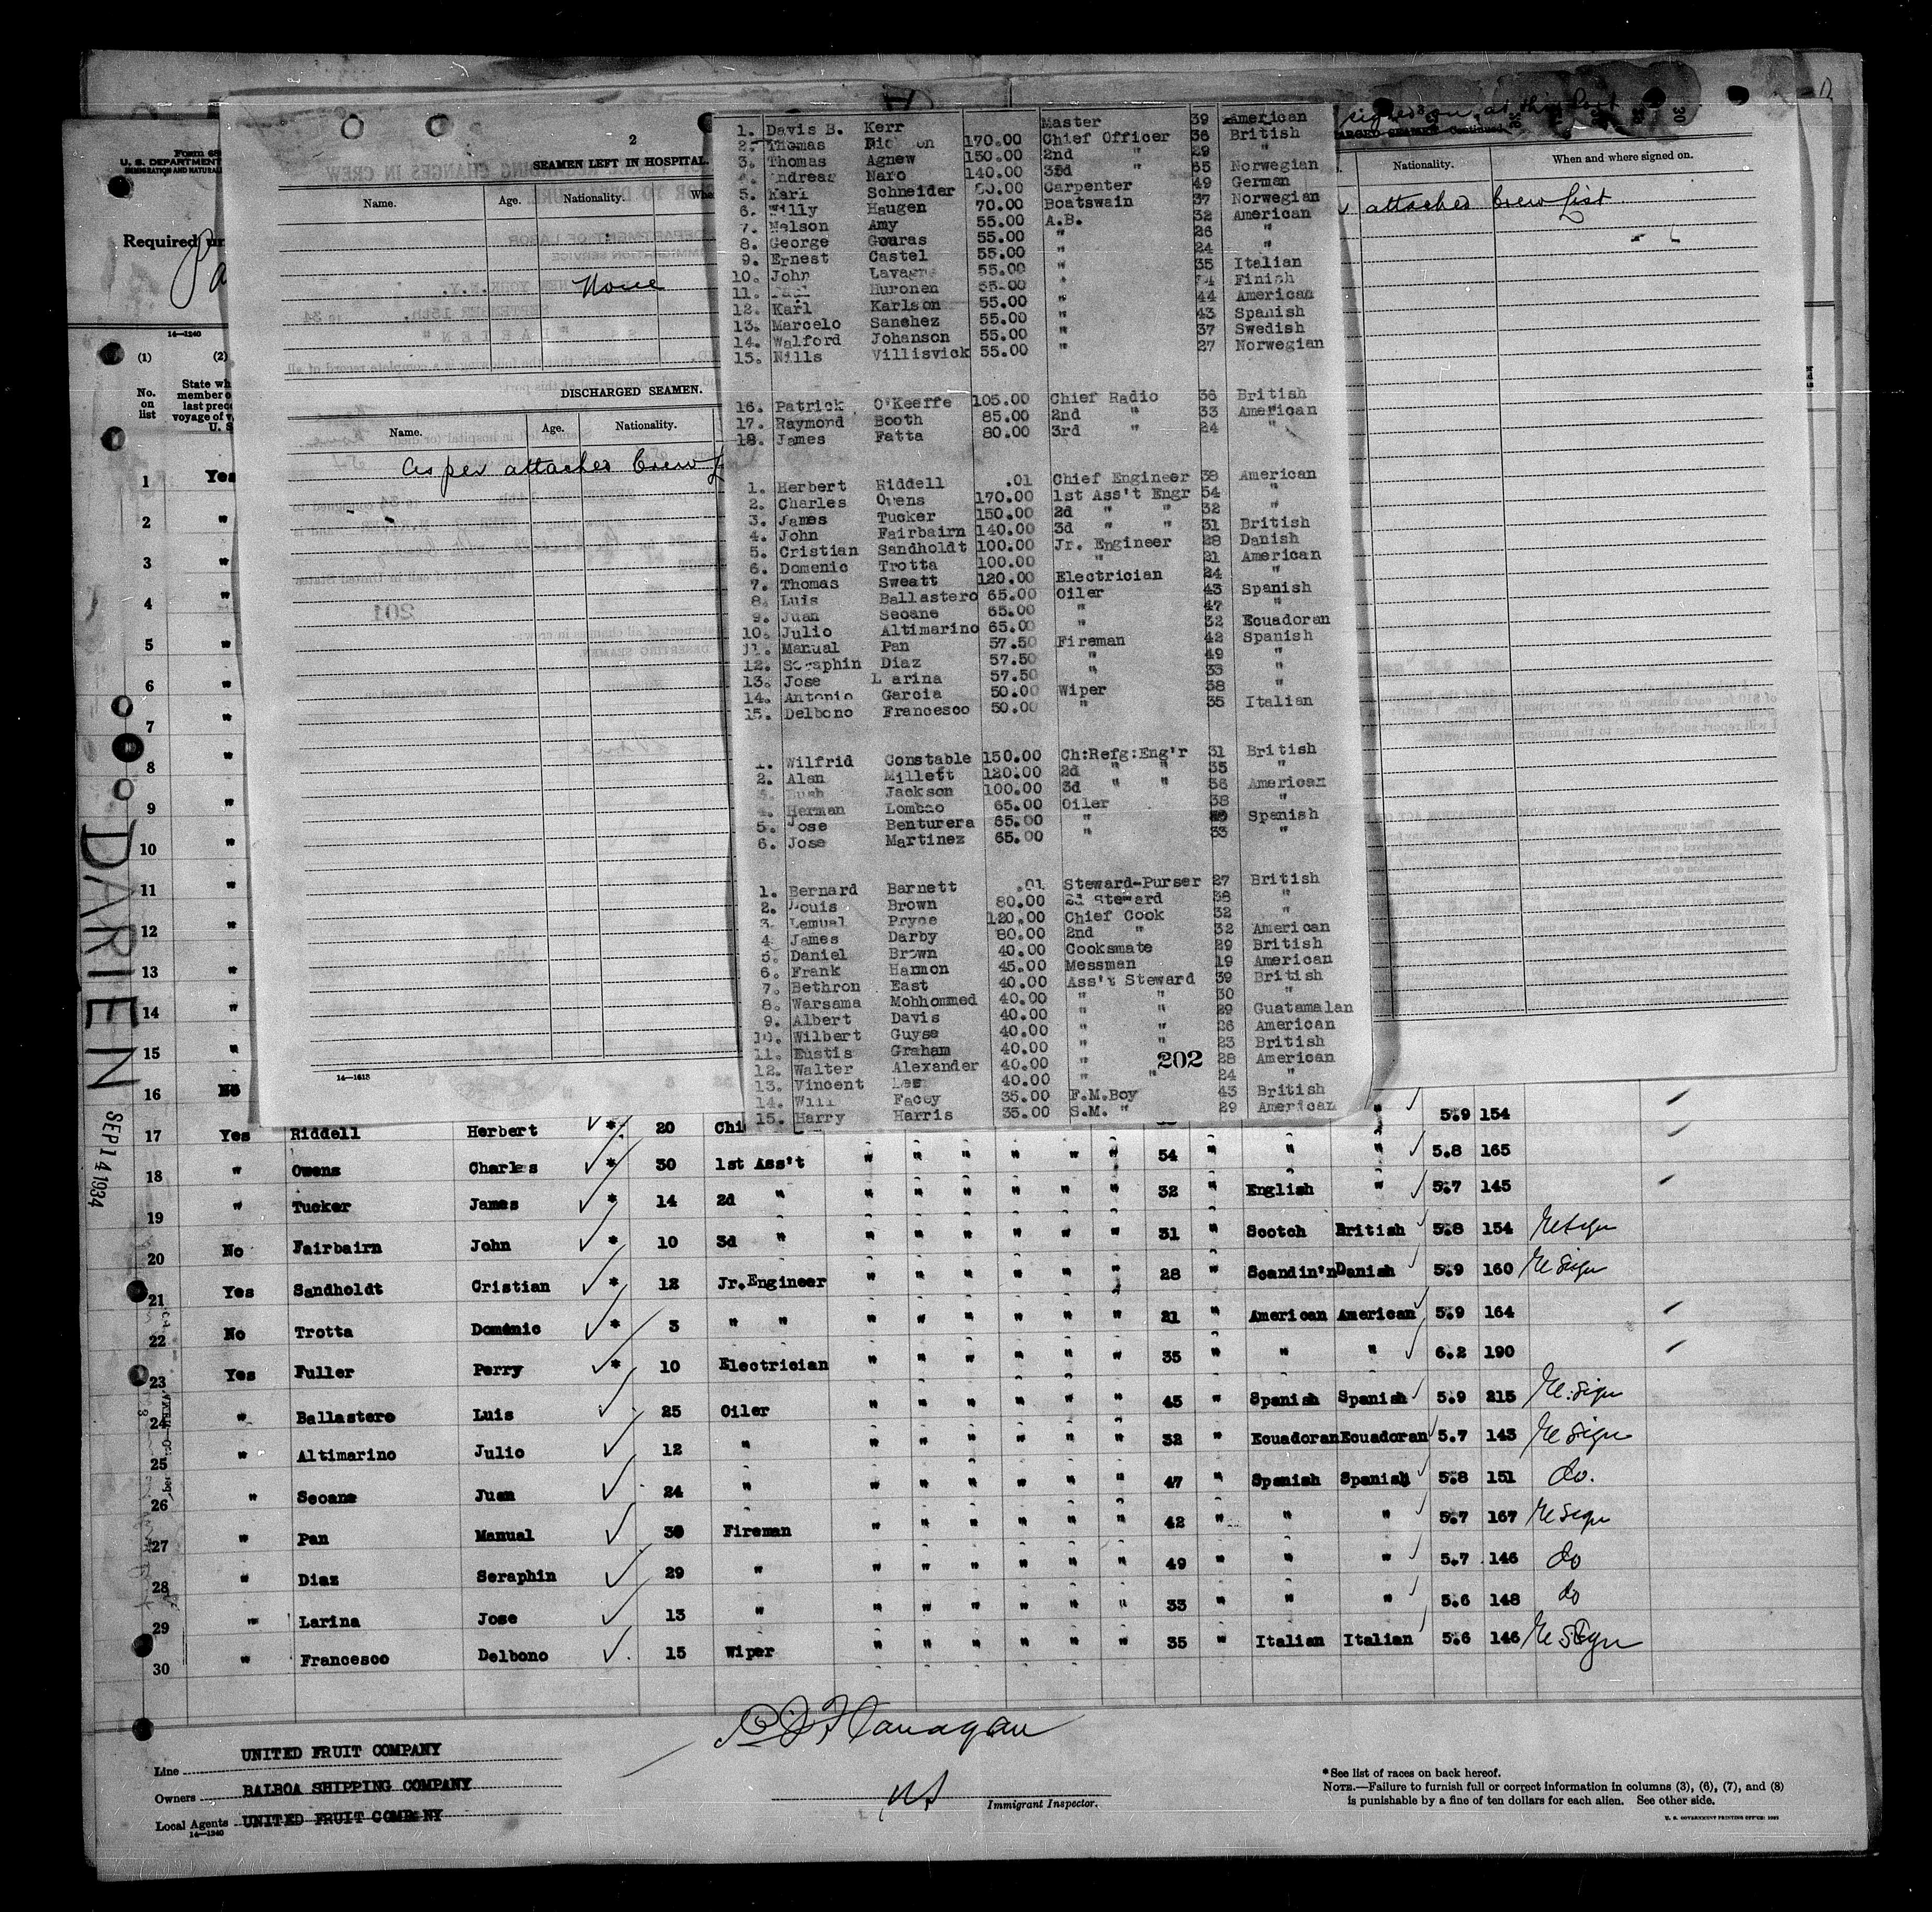 signed on at this Port
2
SEAMEN LEFT IN HOSPITAL.
Name. Age. Nationality.
None
DISCHARGED SEAMEN.
Name. Age. Nationality.
As per attached Crew
14—1618
Nationality. When and where signed on.
attached Crew List
1. Davis B. Kerr Master 39 American
2. Thomas 170.00 Chief Officer 36 British
3. Thomas Agnew 150.00 2nd " 29 "
4. Andreas Naro 140.00 3d " 65 Norwegian
5. Karl Schneider 80.00 Carpenter 49 German
6. Willy Haugen 70.00 Boatswain 37 Norwegian
7. Nelson Amy 55.00 A.B. 32 American
8. George Gouras 55.00 " 26 "
9. Ernest Castel 55.00 " 24 "
10. John Lavagne 55.00 " 35 Italian
11. Huronen 55.00 " Finish
12. Karl Karlson 55.00 " 44 American
13. Marcelo Sanchez 55.00 " 43 Spanish
14. Walford Johanson 55.00 " 37 Swedish
15. Nills Villisvick 55.00 " 27 Norwegian
16. Patrick O'Keeffe 105.00 Chief Radio 36 British
17. Raymond Booth 85.00 2nd " 33 American
18. James Fatta 80.00 3rd " 24 "
1. Herbert Riddell .01 Chief Engineer 38 American
2. Charles Owens 170.00 1st Ass't Engr 54 "
3. James Tucker 150.00 2d " " 32 "
4. John Fairbairn 140.00 3d " " 31 British
5. Cristian Sandholdt 100.00 Jr. Engineer 28 Danish
6. Domenic Trotta 100.00 " 21 American
7. Thomas Sweatt 120.00 Electrician 24 "
8. Luis Ballastero 65.00 Oiler 43 Spanish
9. Juan Seoane 65.00 " 47 "
10. Julio Altimarino 65.00 " 32 Ecuadoran
11. Manual Pan 57.50 Fireman 42 Spanish
12. Seraphin Diaz 57.50 " 49 "
13. Jose Larina 57.50 " 33 "
14. Antonio Garcia 50.00 Wiper 38 "
15. Delbono Francesco 50.00 " 35 Italian
1. Wilfrid Constable 150.00 Ch:Refg:Eng'r 31 British
2. Alan Millett 120.00 2d " " 35 "
3. Jackson 100.00 3d " " 56 American
4. Herman Lombao 65.00 Oiler 38 "
5. Jose Benturera 65.00 " Spanish
6. Jose Martinez 65.00 " 33 "
1. Bernard Barnett .01 Steward-Purser 27 British
2. Louis Brown 80.00 2d Steward 38 "
3. Lemual Pryce 120.00 Chief Cook 32 "
4. James Darby 80.00 2nd " 32 American
5. Daniel Brown 40.00 Cooksmate 29 British
6. Frank Harmon 45.00 Messman 19 American
7. Bethron East 40.00 Ass't Steward 39 British
8. Warsama Mohhommed 40.00 " " 30 "
9. Albert Davis 40.00 " " 29 Guatamalan
10. Wilbert Guyse 40.00 " " 26 American
11. Eustis Graham 40.00 " " 23 British
12. Walter Alexander 40.00 " 202 28 American
13. Vincent Lee 40.00 " " 24 "
14. Will Facey 35.00 F.M.Boy 43 British
15. Harry Harris 35.00 S.M. " 29 American
Form 68
U. S. DEPARTMENT
IMMIGRATION AND NATURAL
Required un
14—1240
(1) (2)
No. on list
State wh
member o
last prec
voyage of v
U. S
1 Yes
2 "
3 "
4 "
5 "
6 "
7 "
8 "
9 "
10 "
11 "
12 "
13 "
14 "
15 "
16 No
DARIEN
SEP 14 1934
17 Yes Riddell Herbert * 20 Chi " 5.9 154
18 " Owens Charles * 30 1st Ass't " " " " " " 54 " " " 5.8 165
19 " Tucker James * 14 2d " " " " " " " 32 " English " 5.7 145
20 No Fairbairn John * 10 3d " " " " " " " 31 " Scotch British 5.8 154 Resign
21 Yes Sandholdt Cristian * 12 Jr.Engineer " " " " " " 28 " Scandin'n Danish 5.9 160 Resign
22 No Trotta Domenic * 3 " " " " " " " " 21 " American American 5.9 164
23 Yes Fuller Perry * 10 Electrician " " " " " " 35 " " " 6.2 190
24 " Ballastero Luis 25 Oiler " " " " " " 45 " Spanish Spanish 5.9 215 Re.sign
25 " Altimarino Julio 12 " " " " " " " 32 " Ecuadoran Ecuadoran 5.7 143 Resign
26 " Seoane Juan 24 " " " " " " " 47 " Spanish Spanish 5.8 151 do.
27 " Pan Manual 30 Fireman " " " " " " 42 " " " 5.7 167 Resign
28 " Diaz Seraphin 29 " " " " " " " 49 " " " 5.7 146 do
29 " Larina Jose 13 " " " " " " " 33 " " " 5.6 148 do
30 " Francesco Delbono 15 Wiper " " " " " " 35 " Italian Italian 5.6 146 Resign
Line UNITED FRUIT COMPANY
Owners BALBOA SHIPPING COMPANY
Local Agents UNITED FRUIT COMPANY
14—1240
Flanagan
Immigrant Inspector.
*See list of races on back hereof.
NOTE.—Failure to furnish full or correct information in columns (3), (6), (7), and (8)
is punishable by a fine of ten dollars for each alien. See other side.
U. S. GOVERNMENT PRINTING OFFICE: 1931